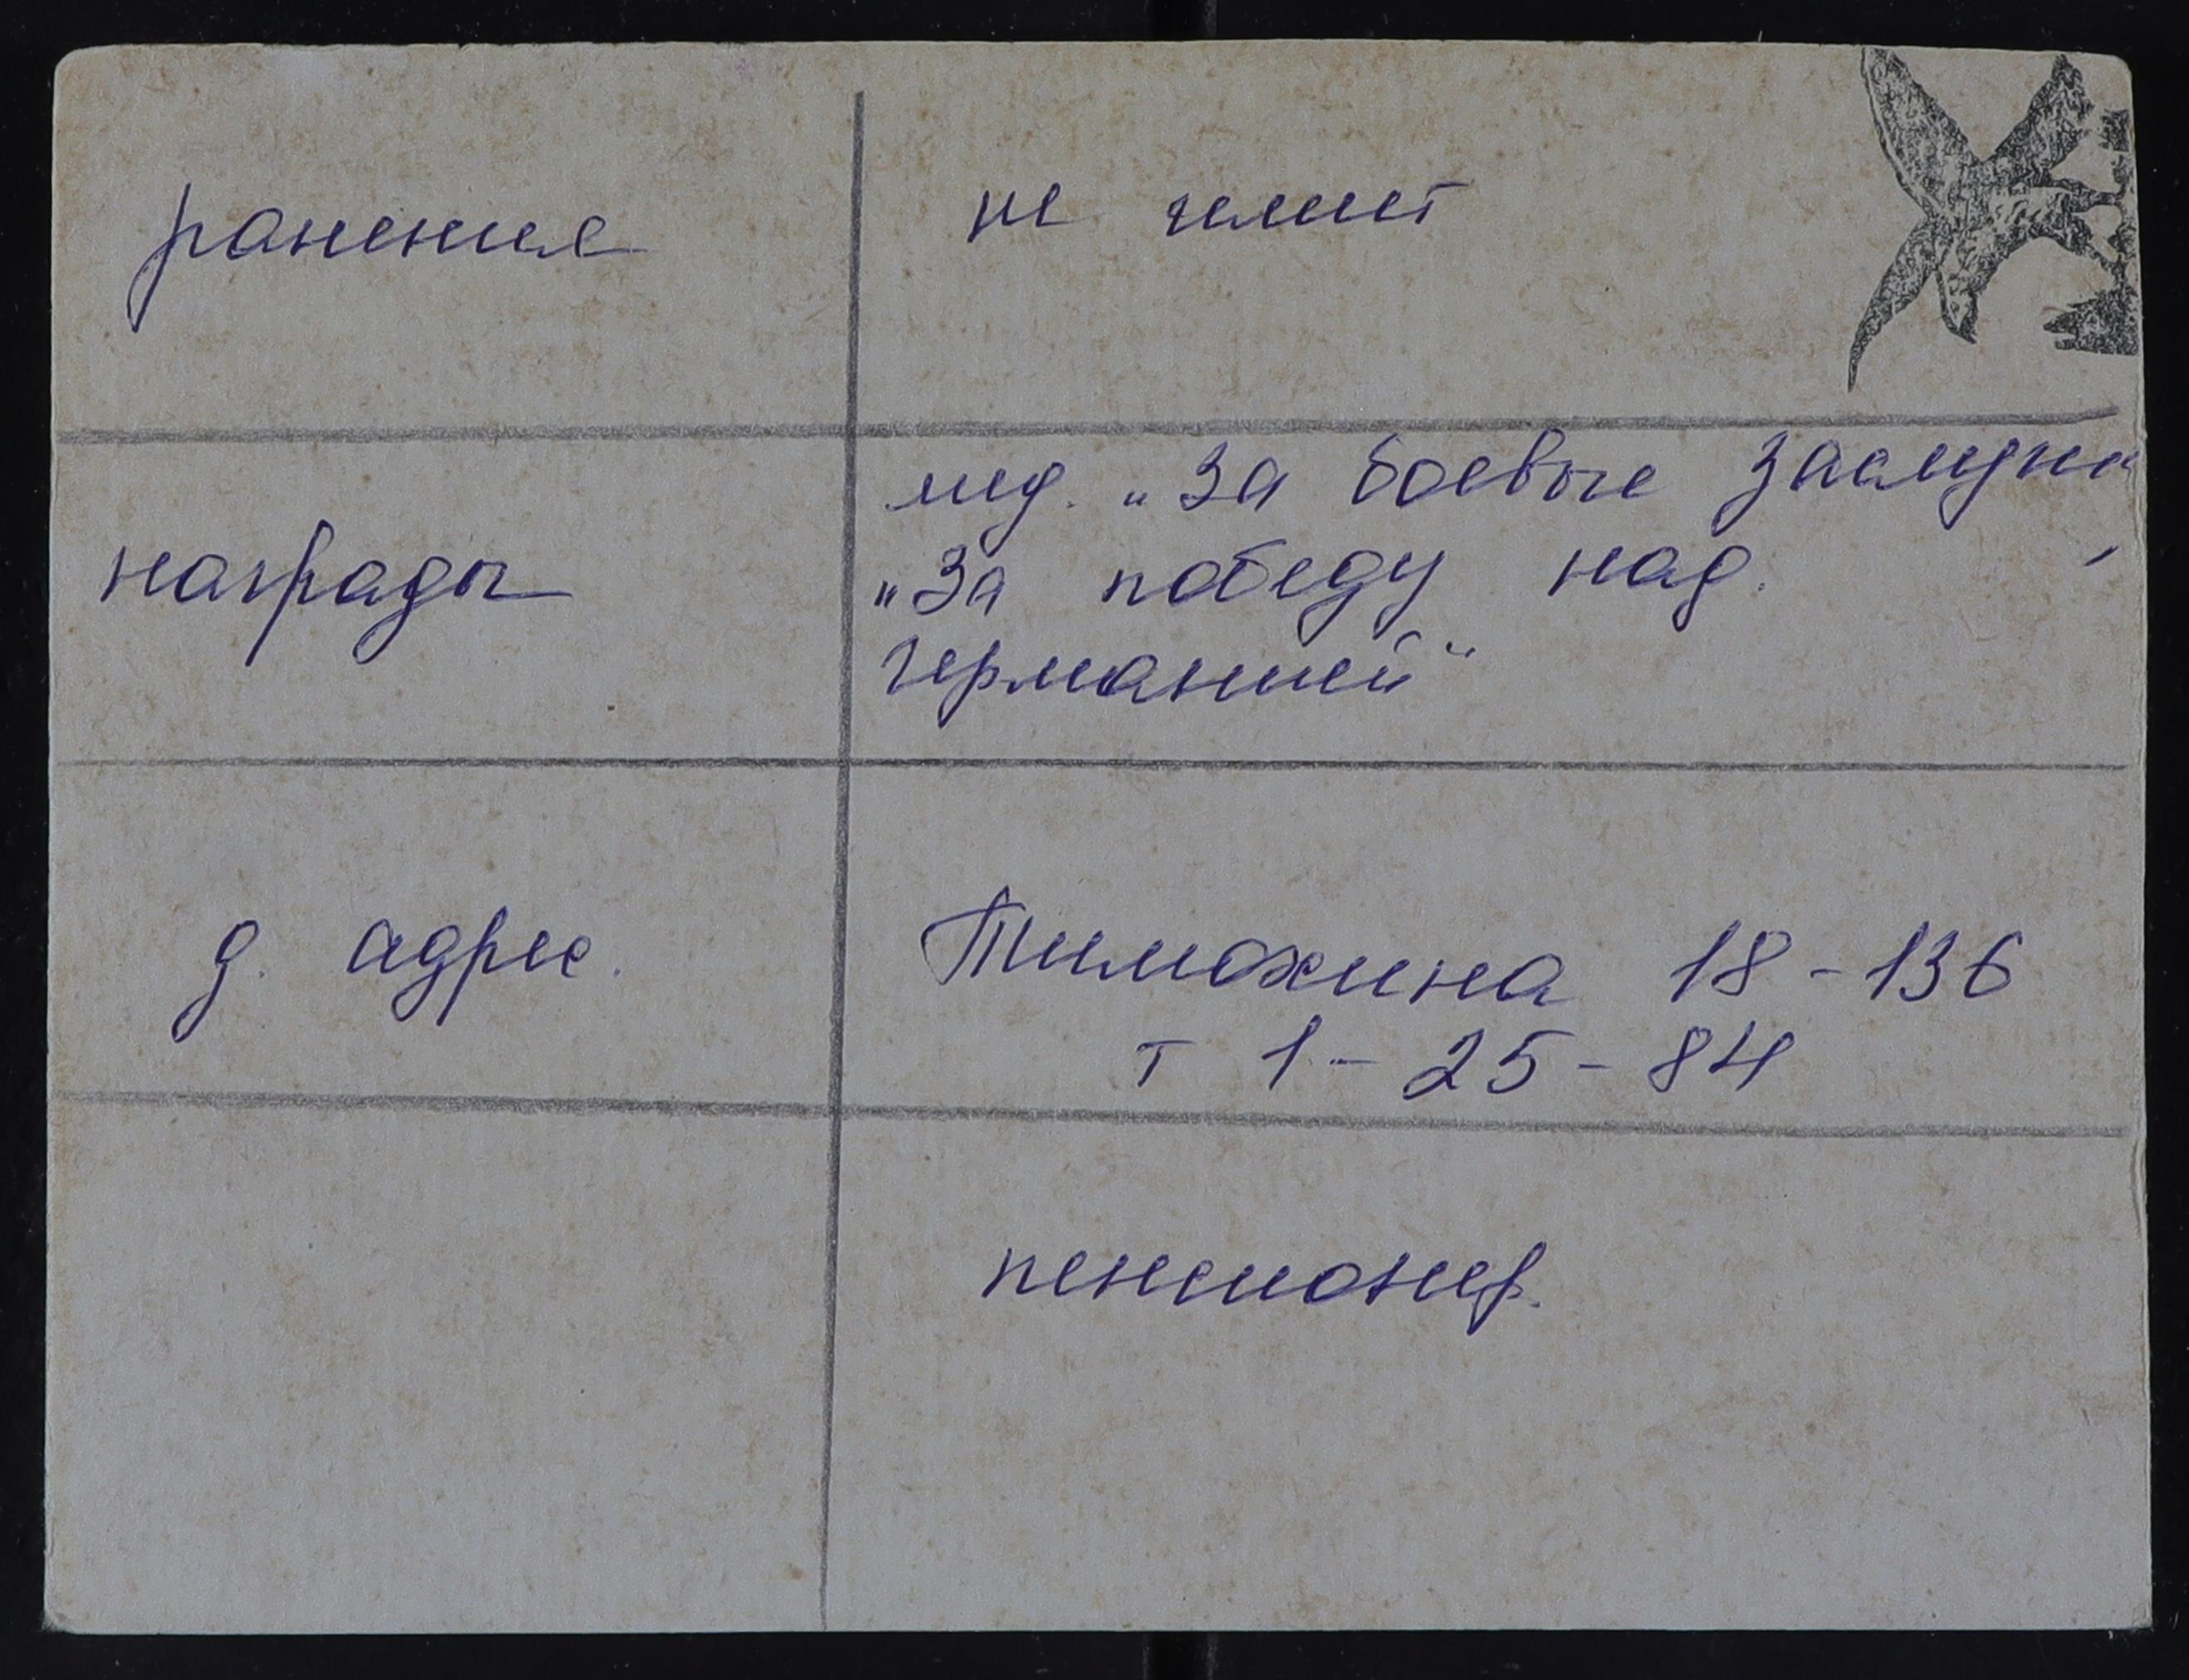 ранения
не имеет
мед. „За боевые заслуги
„За победу над.
награды
Германией“
д. адрес.
Тимохина 18-136
т 1-25-84
пенсионер.